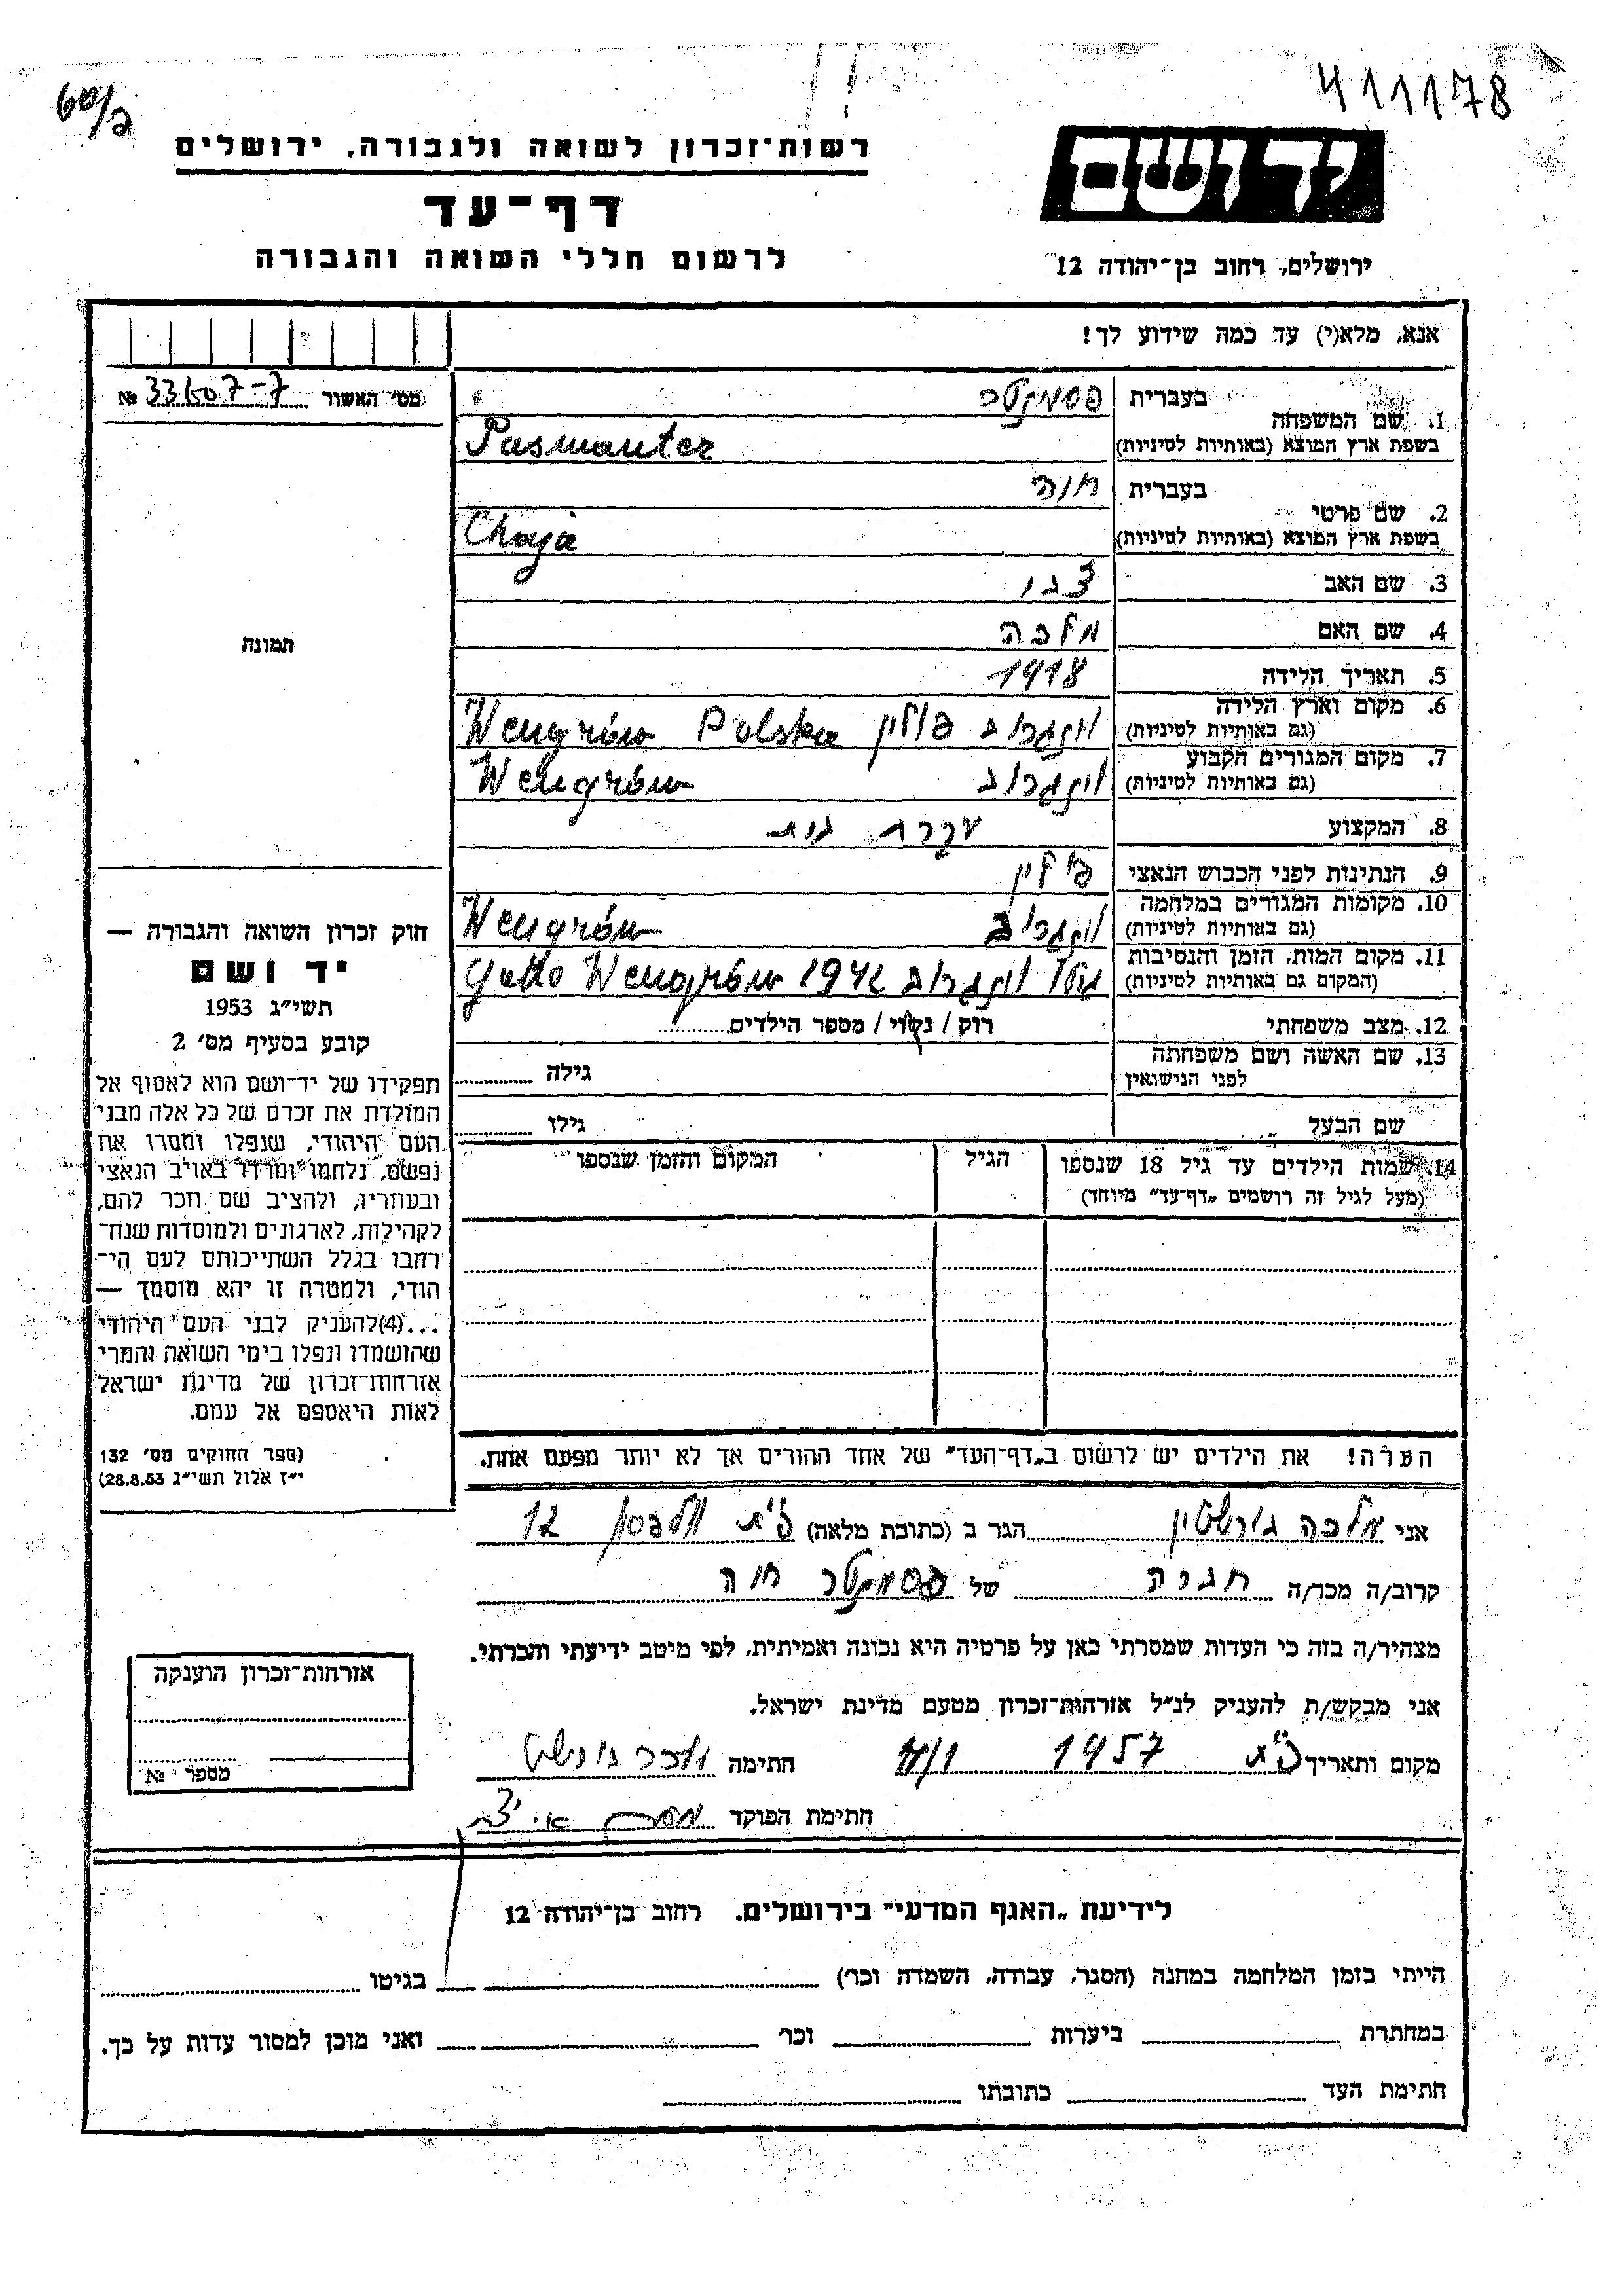 411178
60/פ
רשות־זכרון לשואה ולגבורה, ירושלים
ידושם
דף־עד
לרשום חללי השואה והגבורה
ירושלים, רחוב בן־יהודה 12
אנא, מלא(י) עד כמה שידוע לך!
מס׳ האשור № 33607-7
1. שם המשפחה
בעברית פסמנטר
בשפת ארץ המוצא (באותיות לטיניות) Pasmanter
2. שם פרטי
בעברית חיה
בשפת ארץ המוצא (באותיות לטיניות) Chaja
3. שם האב
4. שם האם מלכה
תמונה
5. תאריך הלידה 1918
6. מקום וארץ הלידה
(גם באותיות לטיניות) ונגרוב פולין Wengrów Polska
7. מקום המגורים הקבוע
(גם באותיות לטיניות) ונגרוב Wengrów
8. המקצוע עקרת בית
9. הנתינות לפני הכבוש הנאצי פולין
10. מקומות המגורים במלחמה
(גם באותיות לטיניות) ונגרוב Wengrów
11. מקום המות, הזמן והנסיבות
(המקום גם באותיות לטיניות) גטו ונגרוב Getto Wengrów 1942
12. מצב משפחתי רוק / נשוי / מספר הילדים
13. שם האשה ושם משפחתה
לפני הנישואין גילה
שם הבעל גילו
14. שמות הילדים עד גיל 18 שנספו הגיל המקום והזמן שנספו
(מעל לגיל זה רושמים „דף־עד״ מיוחד)
הערה! את הילדים יש לרשום ב„דף־העד״ של אחד ההורים אך לא יותר מפעם אחת.
חוק זכרון השואה והגבורה —
יד ושם
תשי״ג 1953
קובע בסעיף מס׳ 2
תפקידו של יד־ושם הוא לאסוף אל
המולדת את זכרם של כל אלה מבני
העם היהודי, שנפלו ומסרו את
נפשם, נלחמו ומרדו באויב הנאצי
ובעוזריו, ולהציב שם וזכר להם,
לקהילות, לארגונים ולמוסדות שנח־
רחבו בגלל השתייכותם לעם הי־
הודי, ולמטרה זו יהא מוסמך —
...(4)להעניק לבני העם היהודי
שהושמדו ונפלו בימי השואה והמרי
אזרחות־זכרון של מדינת ישראל
לאות היאספם אל עמם.
(ספר החוקים מס׳ 132
י״ז אלול תשי״ג 28.8.53)
אני מלכה גורשטין הגר ב (כתובת מלאה) 12
קרוב/ה מכר/ה חברה של פסמנטר חיה
מצהיר/ה בזה כי העדות שמסרתי כאן על פרטיה היא נכונה ואמיתית, לפי מיטב ידיעתי והכרתי.
אני מבקש/ת להעניק לנ״ל אזרחות־זכרון מטעם מדינת ישראל.
מקום ותאריך 1957 חתימה
חתימת הפוקד
אזרחות־זכרון הוענקה
מספר №
לידיעת „האגף המדעי״ בירושלים, רחוב בן־יהודה 12
הייתי בזמן המלחמה במחנה (הסגר, עבודה, השמדה וכו׳) בגיטו
במחתרת ביערות וכו׳ ואני מוכן למסור עדות על כך.
חתימת העד כתובתו